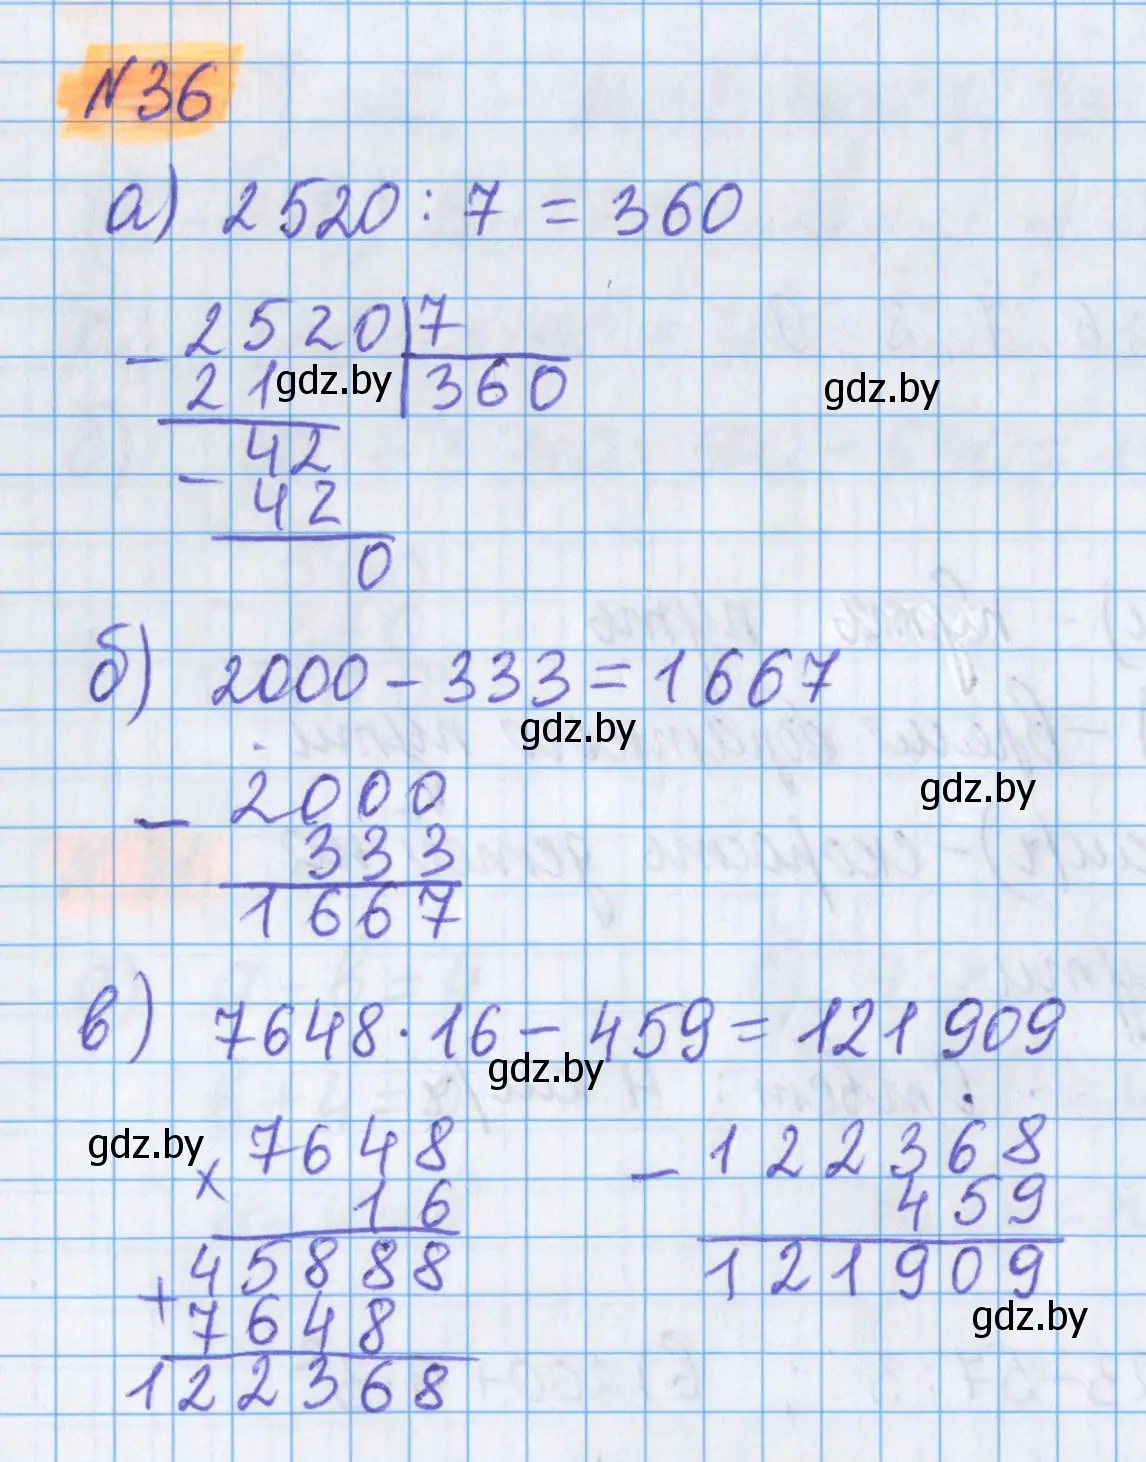 N36
а) 2520 : 7 = 360
- 2520 | 7
21 gdz.by | 360 gdz.by
42
- 42
0
б) 2000 - 333 = 1667
gdz.by
- 2000 gdz.by
333
1667
в) 7648 · 16 - 459 = 121909
gdz.by
gdz.by
7648
× 16
45888
+ 7648
122368
- 122368
459
121909
gdz.by